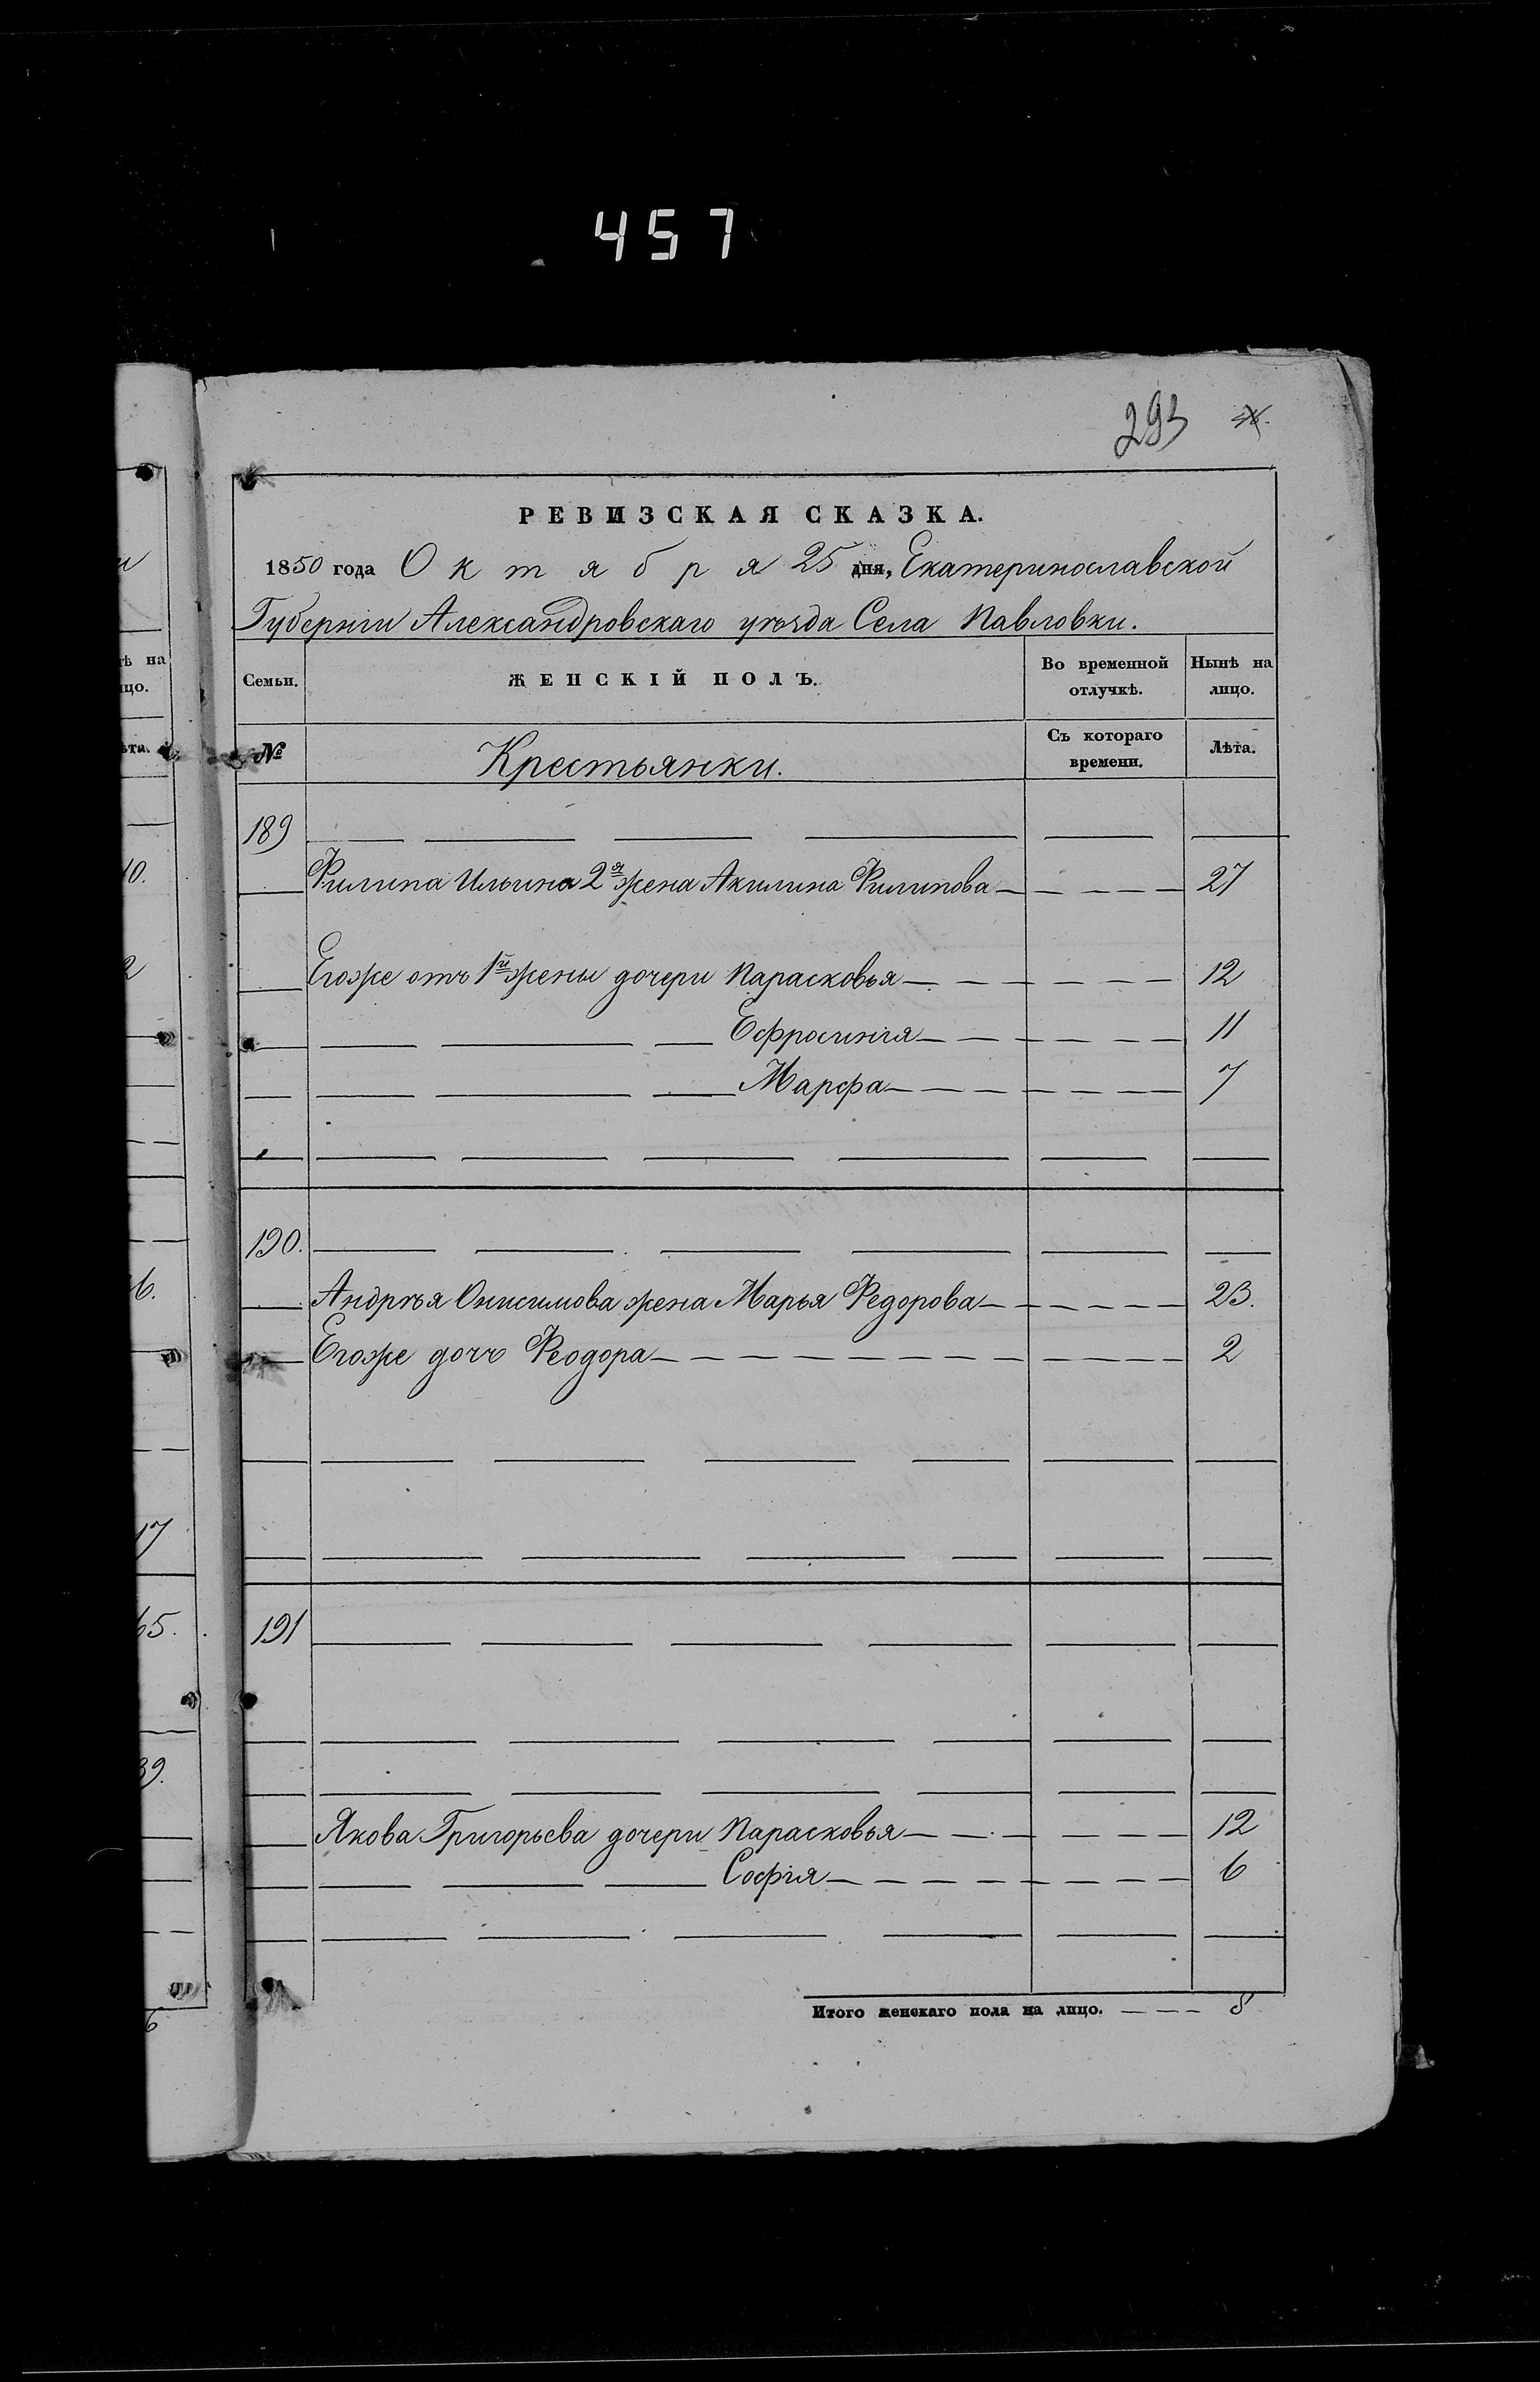 457
293
РЕВИЗСКАЯ СКАЗКА.
1850 года Октября 25 дня, Екатеринославской
Губерніи Александровскаго уѣзда Села Павловки.
Семьи. ЖЕНСКІЙ ПОЛЪ. Во временной отлучкѣ. Нынѣ на лицо.
№ Крестьянки. Съ котораго времени. Лѣта.
189
Филипа Ильина 2я жена Акилина Филипова 27
Егоже отъ 1й жены дочери Парасковья 12
Ефросинія 11
Марфа 7
190.
Андрѣя Онисимова жена Марья Федорова 23.
Егоже дочь Феодора 2
191
Якова Григорьева дочери Парасковья 12
Софія 6
Итого женскаго пола на лицо. 8